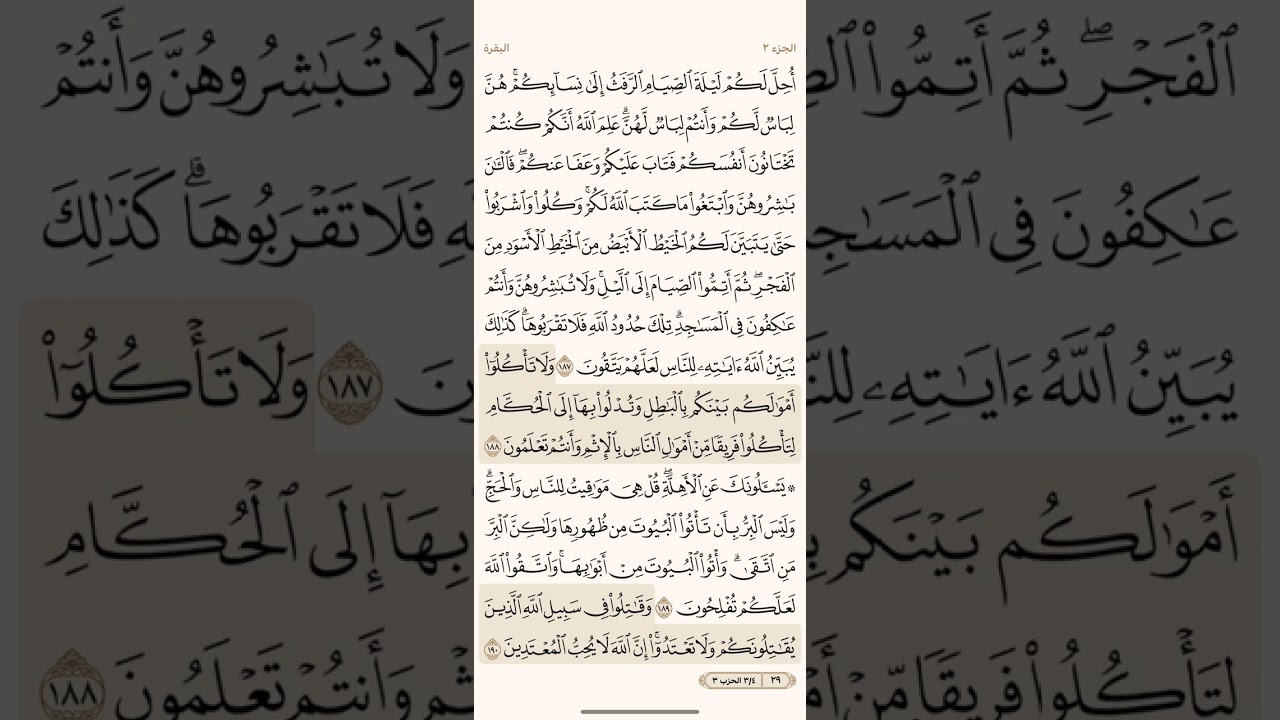 الجزء ٢
البقرة
أُحِلَّ لَكُمْ لَيْلَةَ ٱلصِّيَامِ ٱلرَّفَثُ إِلَىٰ نِسَآئِكُمْۚ هُنَّ
لِبَاسٌ لَّكُمْ وَأَنتُمْ لِبَاسٌ لَّهُنَّۗ عَلِمَ ٱللَّهُ أَنَّكُمْ كُنتُمْ
تَخْتَانُونَ أَنفُسَكُمْ فَتَابَ عَلَيْكُمْ وَعَفَا عَنكُمْۖ فَٱلْـَٰٔنَ
بَـٰشِرُوهُنَّ وَٱبْتَغُوا۟ مَا كَتَبَ ٱللَّهُ لَكُمْۚ وَكُلُوا۟ وَٱشْرَبُوا۟
حَتَّىٰ يَتَبَيَّنَ لَكُمُ ٱلْخَيْطُ ٱلْأَبْيَضُ مِنَ ٱلْخَيْطِ ٱلْأَسْوَدِ مِنَ
ٱلْفَجْرِۖ ثُمَّ أَتِمُّوا۟ ٱلصِّيَامَ إِلَى ٱلَّيْلِۚ وَلَا تُبَـٰشِرُوهُنَّ وَأَنتُمْ
عَـٰكِفُونَ فِى ٱلْمَسَـٰجِدِۗ تِلْكَ حُدُودُ ٱللَّهِ فَلَا تَقْرَبُوهَاۗ كَذَٰلِكَ
يُبَيِّنُ ٱللَّهُ ءَايَـٰتِهِۦ لِلنَّاسِ لَعَلَّهُمْ يَتَّقُونَ ١٨٧ وَلَا تَأْكُلُوٓا۟
أَمْوَٰلَكُم بَيْنَكُم بِٱلْبَـٰطِلِ وَتُدْلُوا۟ بِهَآ إِلَى ٱلْحُكَّامِ
لِتَأْكُلُوا۟ فَرِيقًا مِّنْ أَمْوَٰلِ ٱلنَّاسِ بِٱلْإِثْمِ وَأَنتُمْ تَعْلَمُونَ ١٨٨
۞ يَسْـَٔلُونَكَ عَنِ ٱلْأَهِلَّةِۖ قُلْ هِىَ مَوَٰقِيتُ لِلنَّاسِ وَٱلْحَجِّۗ
وَلَيْسَ ٱلْبِرُّ بِأَن تَأْتُوا۟ ٱلْبُيُوتَ مِن ظُهُورِهَا وَلَـٰكِنَّ ٱلْبِرَّ
مَنِ ٱتَّقَىٰۗ وَأْتُوا۟ ٱلْبُيُوتَ مِنْ أَبْوَٰبِهَاۚ وَٱتَّقُوا۟ ٱللَّهَ
لَعَلَّكُمْ تُفْلِحُونَ ١٨٩ وَقَـٰتِلُوا۟ فِى سَبِيلِ ٱللَّهِ ٱلَّذِينَ
يُقَـٰتِلُونَكُمْ وَلَا تَعْتَدُوٓا۟ۚ إِنَّ ٱللَّهَ لَا يُحِبُّ ٱلْمُعْتَدِينَ ١٩٠
٢٩ ٣/٤ الحزب ٣